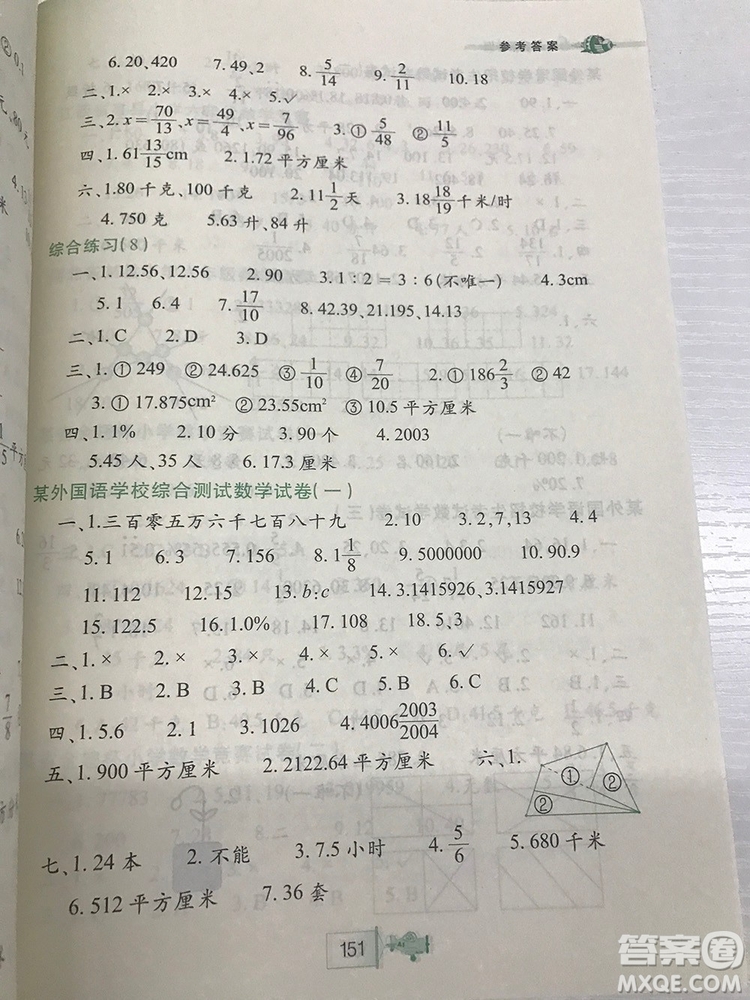 参考答案
6.20,420 7.20,20 8.5/14 9.2/11 10.60
二、1.× 2.× 3.× 4.× 5.✓
三、2.x=70/13、x=49/4、x=7/96 3.①5/48 ②11/5
四、1.61 13/15 cm 2.1.72 平方厘米
六、1.80 千克、100 千克 2.11 1/2 天 3.18 18/19 千米/时
4.750 克 5.63 升、84 升
综合练习(8)
一、1.12.56,12.56 2.90 3.1∶2=3∶6(不唯一) 4.3cm
5.1 6.4 7.17/10 8.42.39,21.195,14.13
二、1.C 2.D 3.D
三、1.①249 ②24.625 ③1/10 ④7/20 2.①186 2/3 ②42
3.①17.875cm² ②23.55cm² ③10.5 平方厘米
四、1.1% 2.10 分 3.90 个 4.2003
5.45 人、35 人 6.17.3 厘米
某外国语学校综合测试数学试卷(一)
一、1.三百零五万六千七百八十九 2.10 3.2、13、7 4.4
5.1 6.3 7.156 8.1 1/8 9.5000000 10.90.9
11.112 12.15 13.b∶c 14.3.1415926、3.1415927
15.122.5 16.1.0% 17.108 18.5、3
二、1.× 2.× 3.× 4.× 5.× 6.✓
三、1.B 2.B 3.B 4.D 5.A 6.C
四、1.5.6 2.7 3.1026 4.4006 2003/2004
五、1.900 平方厘米 2.2122.64 平方厘米 六、1.
① ② ②
七、1.24 本 2.不能 3.7.5 小时 4.5/6 5.680 千米
6.512 平方厘米 7.36 套
151
答案圈
MXQE.COM